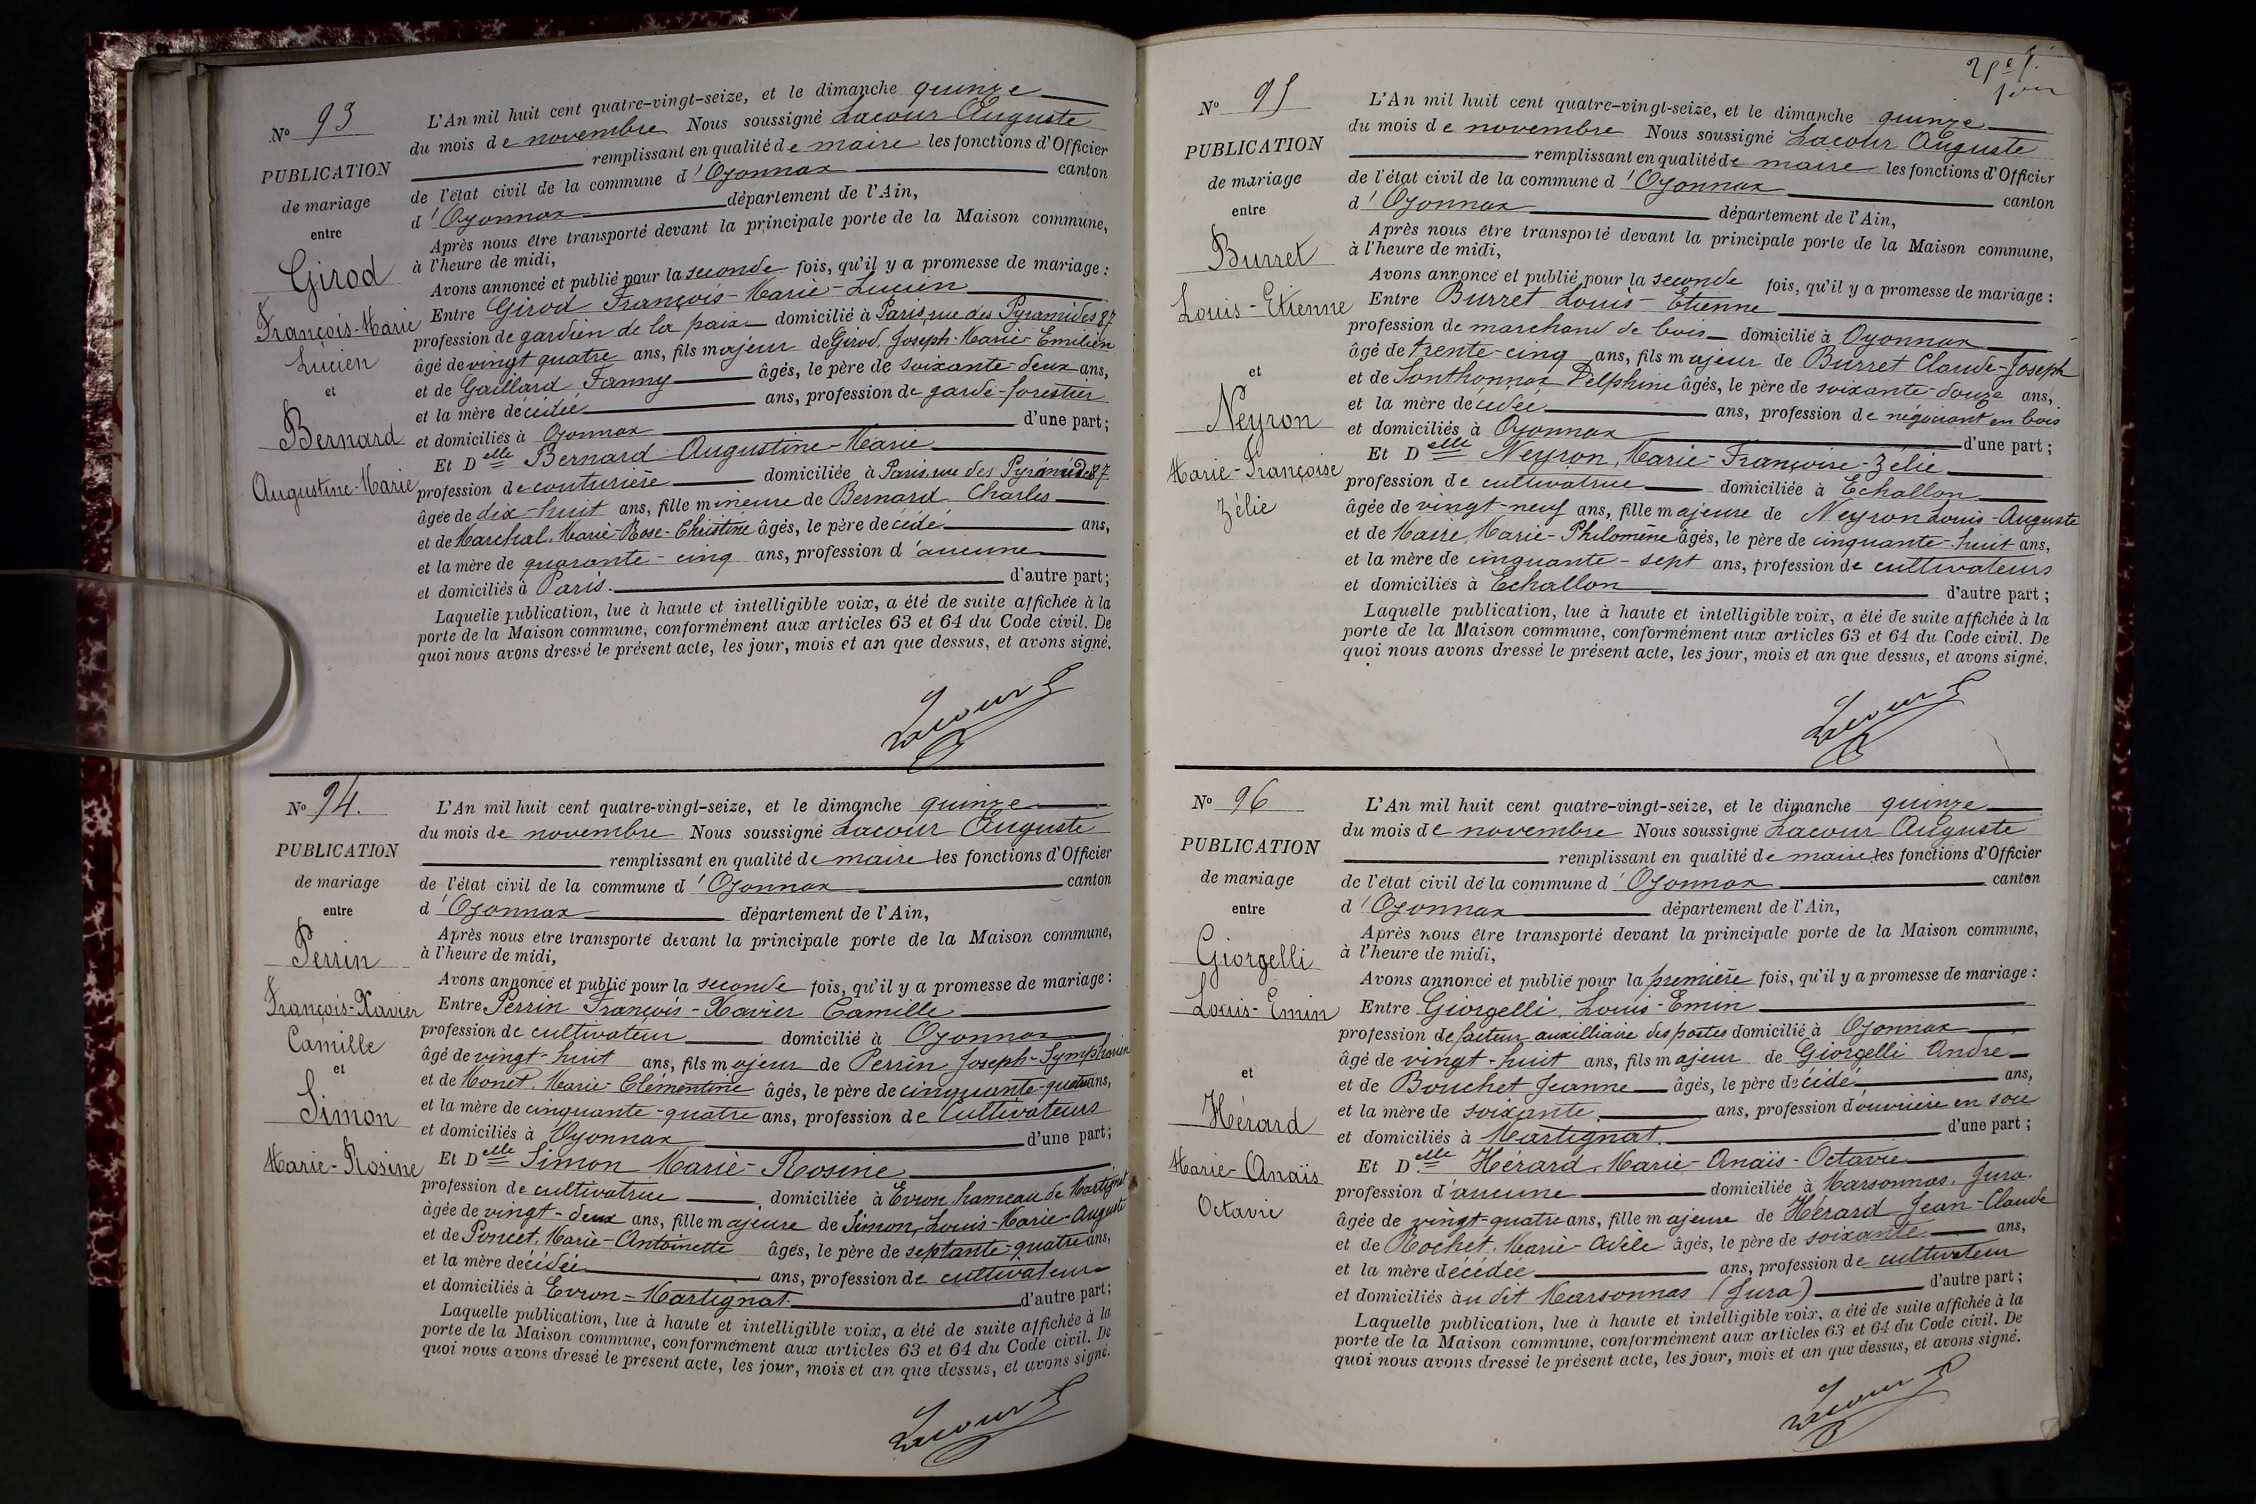 Nº 93
PUBLICATION
de mariage
entre
Girod
François-Marie
Lucien
et
Bernard
Augustine-Marie
L'An mil huit cent quatre-vingt-seize, et le dimanche quinze
du mois de novembre Nous soussigné Lacour Auguste
remplissant en qualité de maire les fonctions d'Officier
de l'état civil de la commune d'Oyonnax canton
d'Oyonnax département de l'Ain,
Après nous être transporté devant la principale porte de la Maison commune,
à l'heure de midi,
Avons annoncé et publié pour la seconde fois, qu'il y a promesse de mariage :
Entre Girod François-Marie-Lucien
profession de gardien de la paix domicilié à Paris, rue des Pyramides 87
âgé de vingt quatre ans, fils majeur de Girod, Joseph-Marie-Emilien
et de Gaillard Fanny âgés, le père de soixante-deux ans,
et la mère décédée ans, profession de garde-forestier
et domiciliés à Oyonnax d'une part;
Et Delle Bernard Augustine-Marie
profession de couturière domiciliée à Paris rue des Pyramides 87
âgée de dix-huit ans, fille mineure de Bernard Charles
et de Marchal, Marie-Rose-Christine âgés, le père décédé ans,
et la mère de quarante-cinq ans, profession d'aucune
et domiciliés à Paris. d'autre part;
Laquelle publication, lue à haute et intelligible voix, a été de suite affichée à la
porte de la Maison commune, conformément aux articles 63 et 64 du Code civil. De
quoi nous avons dressé le présent acte, les jour, mois et an que dessus, et avons signé.
Lacour
Nº 94.
PUBLICATION
de mariage
entre
Perrin
François-Xavier
Camille
et
Simon
Marie-Rosine
L'An mil huit cent quatre-vingt-seize, et le dimanche quinze
du mois de novembre Nous soussigné Lacour Auguste
remplissant en qualité de maire les fonctions d'Officier
de l'état civil de la commune d'Oyonnax canton
d'Oyonnax département de l'Ain,
Après nous être transporté devant la principale porte de la Maison commune,
à l'heure de midi,
Avons annoncé et publié pour la seconde fois, qu'il y a promesse de mariage :
Entre Perrin François-Xavier Camille
profession de cultivateur domicilié à Oyonnax
âgé de vingt-huit ans, fils majeur de Perrin Joseph-Symphorien
et de Monet, Marie-Clémentine âgés, le père de cinquante-quatre ans,
et la mère de cinquante-quatre ans, profession de cultivateurs
et domiciliés à Oyonnax d'une part;
Et Delle Simon Marie-Rosine
profession de cultivatrice domiciliée à Evron hameau de Martignat
âgée de vingt-deux ans, fille majeure de Simon, Louis-Marie-Auguste
et de Poncet, Marie-Antoinette âgés, le père de septante-quatre ans,
et la mère décédée ans, profession de cultivateur
et domiciliés à Evron-Martignat. d'autre part;
Laquelle publication, lue à haute et intelligible voix, a été de suite affichée à la
porte de la Maison commune, conformément aux articles 63 et 64 du Code civil. De
quoi nous avons dressé le présent acte, les jour, mois et an que dessus, et avons signé.
Lacour
Nº 95
PUBLICATION
de mariage
entre
Burret
Louis-Etienne
et
Neyron
Marie-Françoise
Zélie
L'An mil huit cent quatre-vingt-seize, et le dimanche quinze
du mois de novembre Nous soussigné Lacour Auguste
remplissant en qualité de maire les fonctions d'Officier
de l'état civil de la commune d'Oyonnax canton
d'Oyonnax département de l'Ain,
Après nous être transporté devant la principale porte de la Maison commune,
à l'heure de midi,
Avons annoncé et publié pour la seconde fois, qu'il y a promesse de mariage :
Entre Burret Louis-Etienne
profession de marchand de bois domicilié à Oyonnax
âgé de trente-cinq ans, fils majeur de Burret Claude-Joseph
et de Sonthonnax Delphine âgés, le père de soixante-douze ans,
et la mère décédée ans, profession de négociant en bois
et domiciliés à Oyonnax d'une part;
Et Delle Neyron, Marie-Françoise-Zélie
profession de cultivatrice domiciliée à Echallon
âgée de vingt-neuf ans, fille majeure de Neyron Louis-Auguste
et de Maire, Marie-Philomène âgés, le père de cinquante-huit ans,
et la mère de cinquante-sept ans, profession de cultivateurs
et domiciliés à Echallon d'autre part;
Laquelle publication, lue à haute et intelligible voix, a été de suite affichée à la
porte de la Maison commune, conformément aux articles 63 et 64 du Code civil. De
quoi nous avons dressé le présent acte, les jour, mois et an que dessus, et avons signé.
Lacour
Nº 96
PUBLICATION
de mariage
entre
Giorgelli
Louis-Emin
et
Hérard
Marie-Anaïs
Octavie
L'An mil huit cent quatre-vingt-seize, et le dimanche quinze
du mois de novembre Nous soussigné Lacour Auguste
remplissant en qualité de maire les fonctions d'Officier
de l'état civil de la commune d'Oyonnax canton
d'Oyonnax département de l'Ain,
Après nous être transporté devant la principale porte de la Maison commune,
à l'heure de midi,
Avons annoncé et publié pour la première fois, qu'il y a promesse de mariage :
Entre Giorgelli, Louis-Emin
profession de facteur auxilliaire des postes domicilié à Oyonnax
âgé de vingt-huit ans, fils majeur de Giorgelli André
et de Bouchet Jeanne âgés, le père décédé ans,
et la mère de soixante ans, profession d'ouvrière en soie
et domiciliés à Martignat. d'une part;
Et Delle Hérard, Marie-Anaïs-Octavie
profession d'aucune domiciliée à Marsonnas, Jura.
âgée de vingt-quatre ans, fille majeure de Hérard Jean-Claude
et de Rochet, Marie-Adèle âgés, le père de soixante ans,
et la mère décédée ans, profession de cultivateur
et domiciliés au dit Marsonnas (Jura) d'autre part;
Laquelle publication, lue à haute et intelligible voix, a été de suite affichée à la
porte de la Maison commune, conformément aux articles 63 et 64 du Code civil. De
quoi nous avons dressé le présent acte, les jour, mois et an que dessus, et avons signé.
Lacour